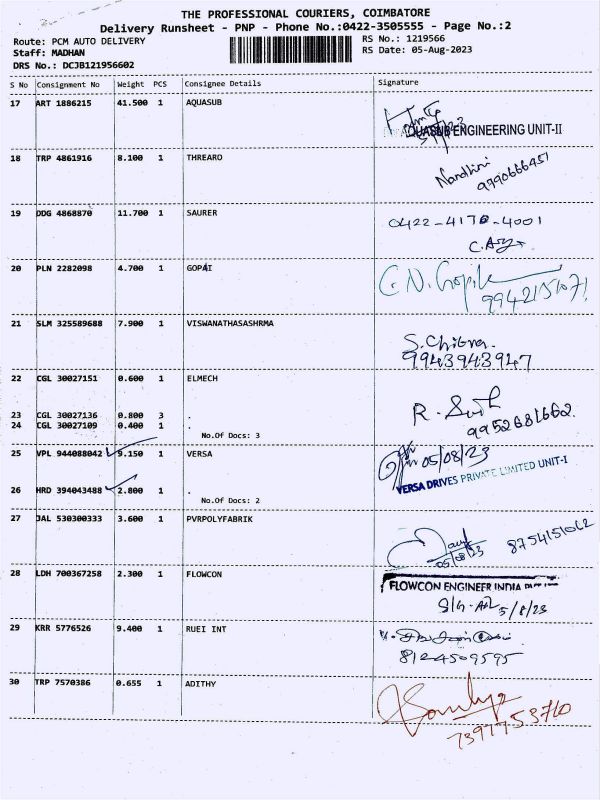 THE PROFESSIONAL COURIERS, COIMBATORE
Delivery Runsheet - PNP - Phone No.:0422-3505555 - Page No.:2
Route: PCM AUTO DELIVERY
RS No.: 1219566
Staff: MADHAN
RS Date: 05-Aug-2023
DRS No.: DCJB121956602
S No Consignment No Weight PCS Consignee Details Signature
17 ART 1886215 41.500 1 AQUASUB
AQUASUB ENGINEERING UNIT-II
18 TRP 4861916 8.100 1 THREARO
Nandhini
9790666451
19 DDG 4868870 11.700 1 SAURER
0422-4170-4001
20 PLN 2282098 4.700 1 GOPAI
G.N. Gopik
21 SLM 325589688 7.900 1 VISWANATHASASHRMA
S. Chitra.
9943943947
22 CGL 30027151 0.600 1 ELMECH
23 CGL 30027136 0.800 3 .
24 CGL 30027109 0.400 1 .
No.Of Docs: 3
9952681662.
25 VPL 944088042 9.150 1 VERSA
05/08/23
VERSA DRIVES PRIVATE LIMITED UNIT-I
26 HRD 394043488 2.800 1 .
No.Of Docs: 2
27 JAL 530300333 3.600 1 PVRPOLYFABRIK
05/08/23
8754151062
28 LDH 700367258 2.300 1 FLOWCON
FLOWCON ENGINEER INDIA
5/8/23
29 KRR 5776526 9.400 1 RUEI INT
8124509595
30 TRP 7570386 0.655 1 ADITHY
7397753710